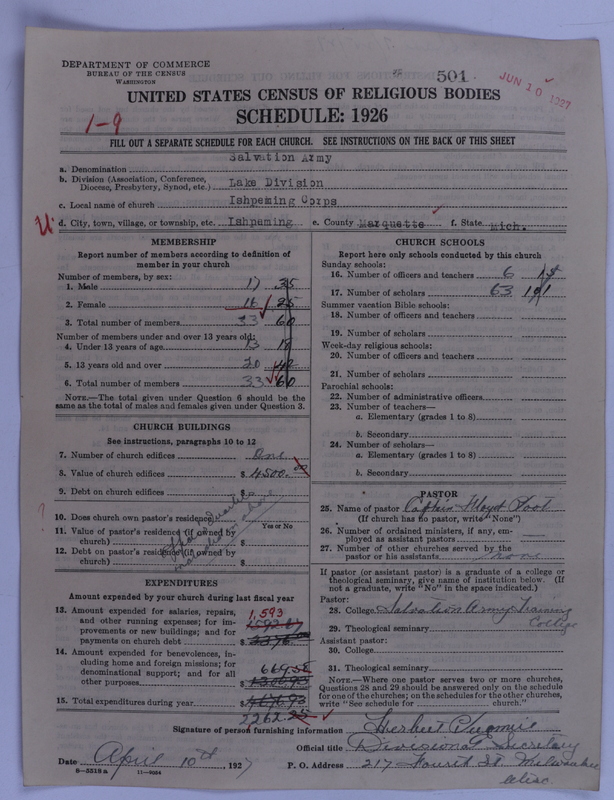 DEPARTMENT OF COMMERCE
BUREAU OF THE CENSUS
WASHINGTON
501
JUN 10 1927
UNITED STATES CENSUS OF RELIGIOUS BODIES
SCHEDULE: 1926
1-9
FILL OUT A SEPARATE SCHEDULE FOR EACH CHURCH. SEE INSTRUCTIONS ON THE BACK OF THIS SHEET
a. Denomination Salvation Army
b. Division (Association, Conference, Diocese, Presbytery, Synod, etc.) Lake Division
c. Local name of church Ishpeming Corps
d. City, town, village, or township, etc. Ishpeming e. County Marquette f. State Mich.
MEMBERSHIP
Report number of members according to definition of
member in your church
Number of members, by sex:
1. Male 17 35
2. Female 16 25
3. Total number of members 33 60
Number of members under and over 13 years old:
4. Under 13 years of age 13 18
5. 13 years old and over 20 42
6. Total number of members 33 60
NOTE.—The total given under Question 6 should be the
same as the total of males and females given under Question 3.
CHURCH BUILDINGS
See instructions, paragraphs 10 to 12
7. Number of church edifices One
8. Value of church edifices $ 4500.00
9. Debt on church edifices $
10. Does church own pastor's residence
Yes or No
11. Value of pastor's residence (if owned by
church) $
12. Debt on pastor's residence (if owned by
church) $
EXPENDITURES
Amount expended by your church during last fiscal year
13. Amount expended for salaries, repairs,
and other running expenses; for im-
provements or new buildings; and for
payments on church debt $
1,593
14. Amount expended for benevolences, in-
cluding home and foreign missions; for
denominational support; and for all
other purposes $
15. Total expenditures during year $
CHURCH SCHOOLS
Report here only schools conducted by this church
Sunday schools:
16. Number of officers and teachers 6
17. Number of scholars 63
Summer vacation Bible schools:
18. Number of officers and teachers
19. Number of scholars
Week-day religious schools:
20. Number of officers and teachers
21. Number of scholars
Parochial schools:
22. Number of administrative officers
23. Number of teachers—
a. Elementary (grades 1 to 8)
b. Secondary
24. Number of scholars—
a. Elementary (grades 1 to 8)
b. Secondary
PASTOR
25. Name of pastor Captain Floyd
(If church has no pastor, write "None")
26. Number of ordained ministers, if any, em-
ployed as assistant pastors
27. Number of other churches served by the
pastor or his assistants none
If pastor (or assistant pastor) is a graduate of a college or
theological seminary, give name of institution below. (If
not a graduate, write "No" in the space indicated.)
Pastor:
28. College Salvation Army Training
College
29. Theological seminary
Assistant pastor:
30. College
31. Theological seminary
NOTE.—Where one pastor serves two or more churches,
Questions 28 and 29 should be answered only on the schedule
for one of the churches; on the schedules for the other churches,
write "See schedule for church."
Signature of person furnishing information Herbert
Official title Divisional Secretary
Date April 10th, 1927 P. O. Address 217 Fourth St. Milwaukee
Wisc.
8—5518 a 11—9024